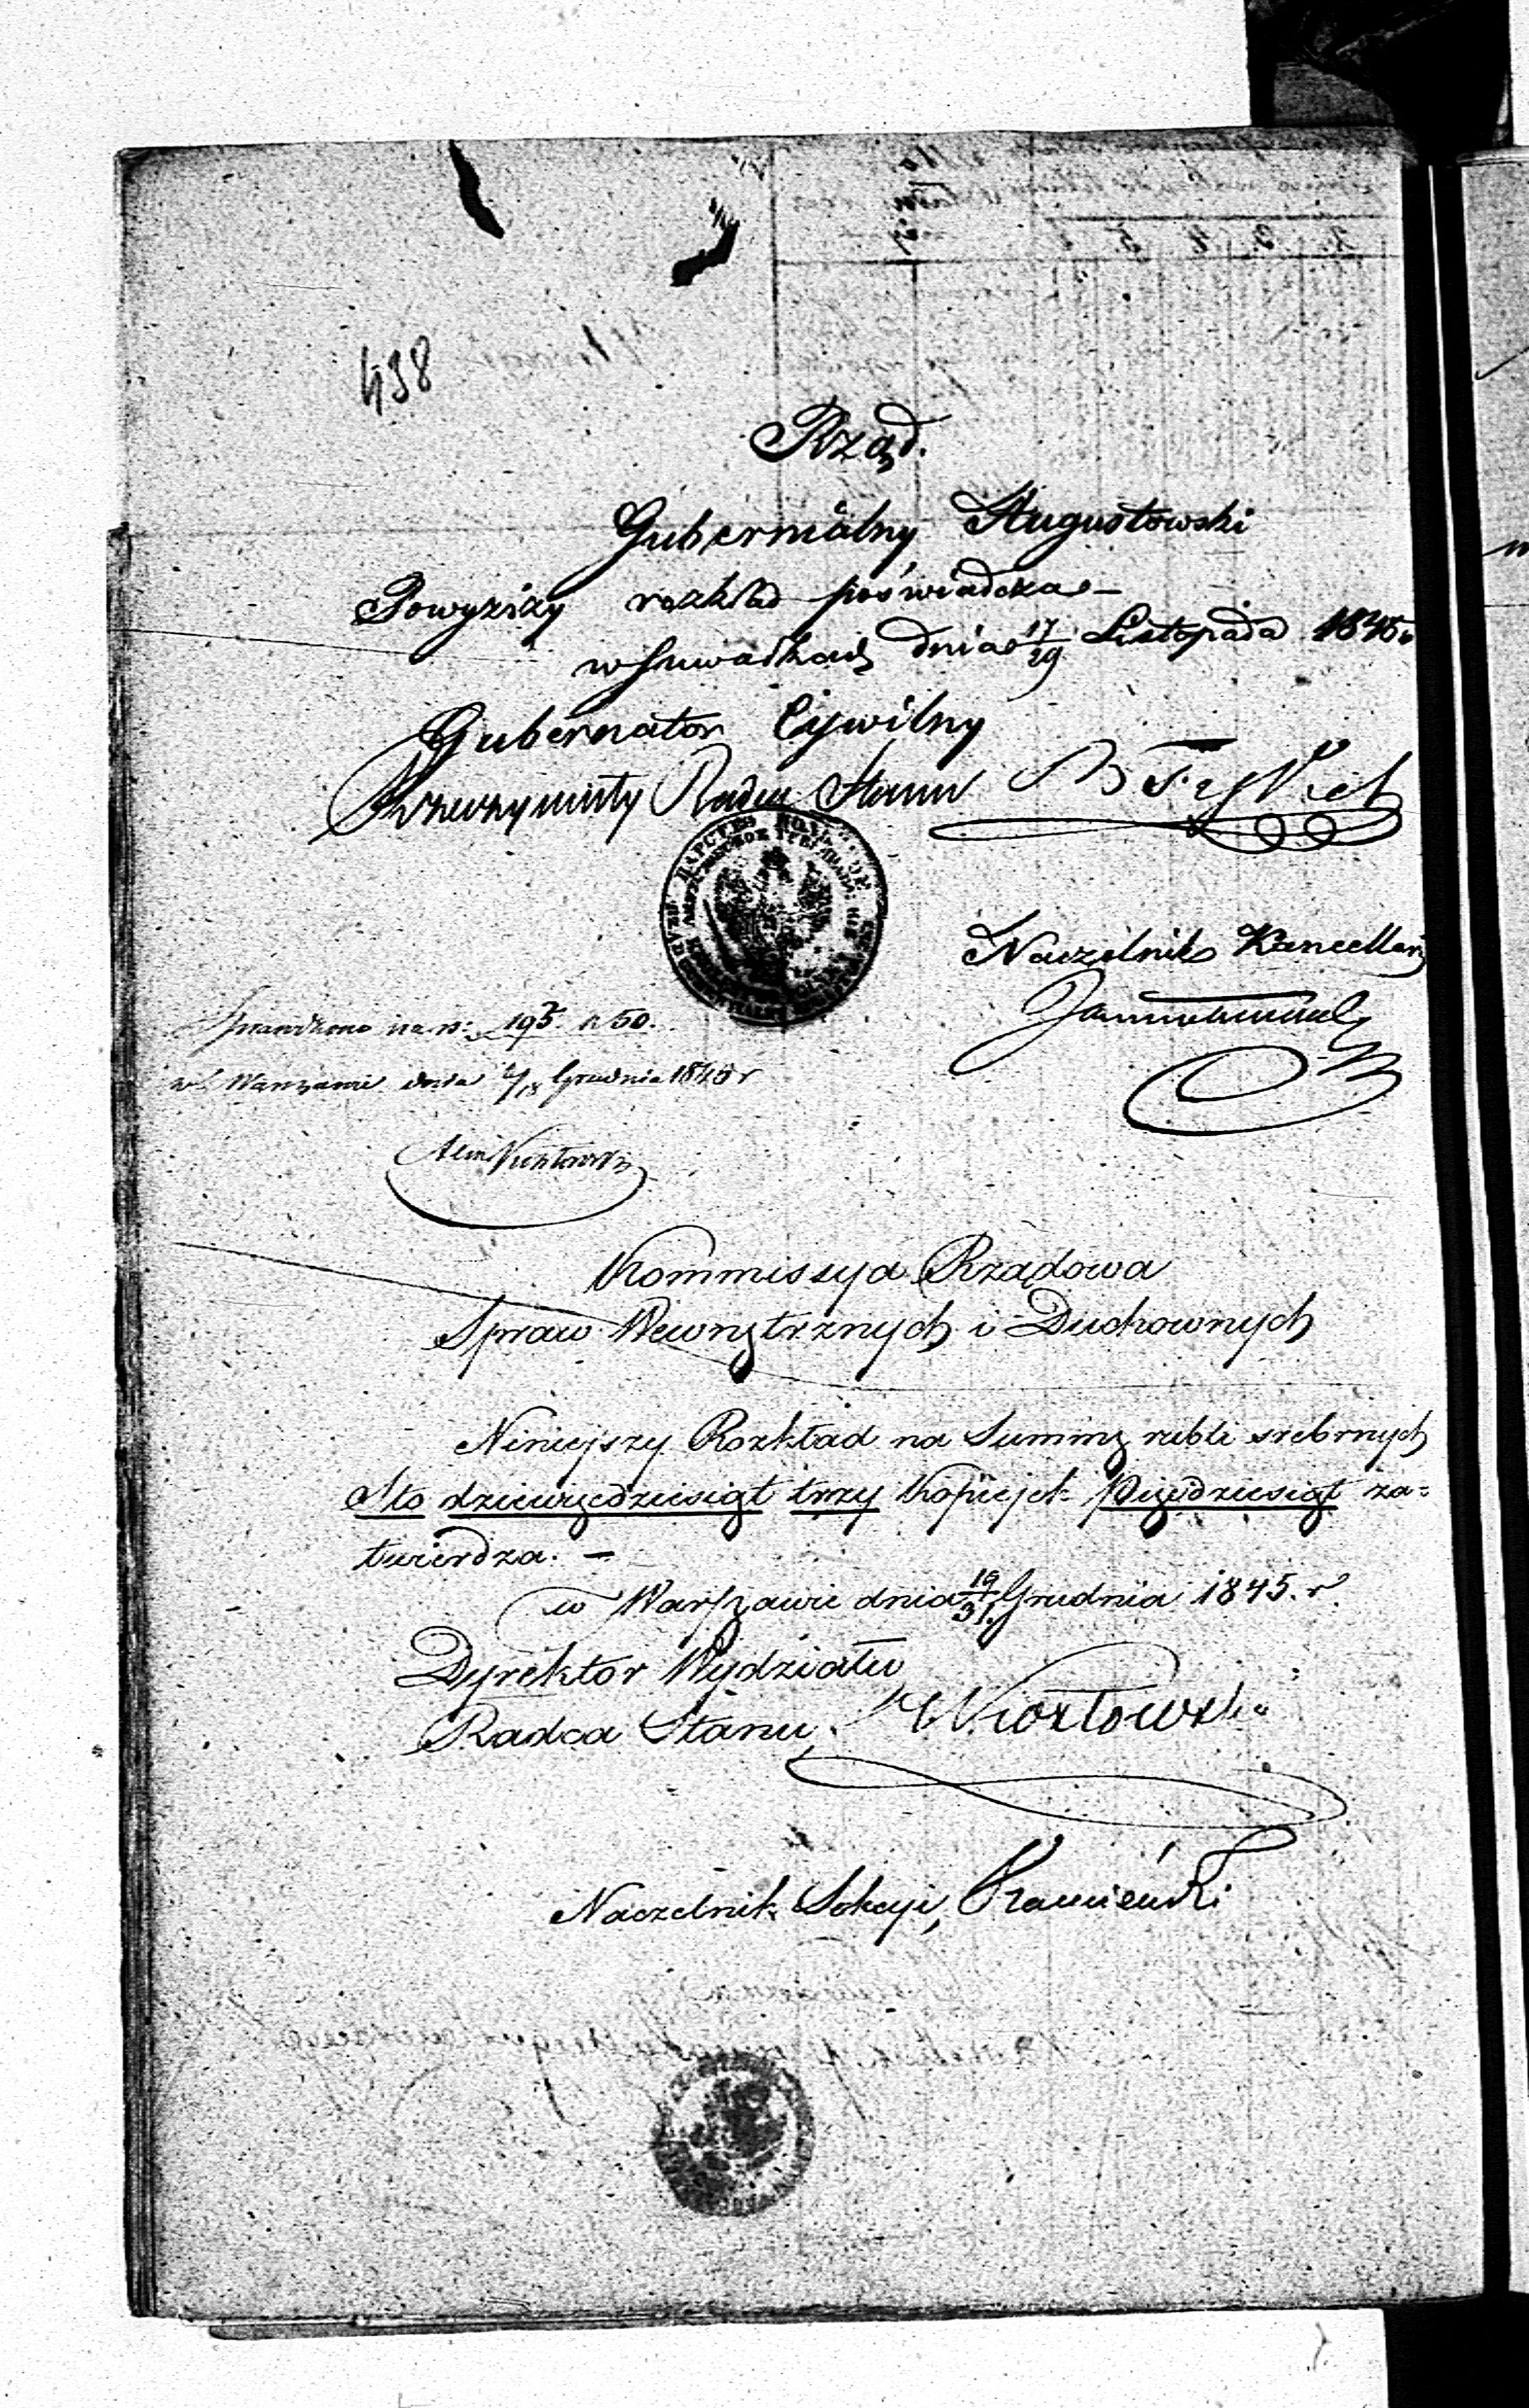 438
Rząd.
Gubernialny Augustowski
Powyższy rozkład poświadcza –
w Suwałkach dnia 17/29 Listopada 1845 r
Gubernator Cywilny
Rzeczywisty Radca Stanu
Naczelnik Kancellaryi
Sprawdzono na rs: 193. k 50.
w Warszawie dnia 6/18 Grudnia 1845 r
Kommissya Rządowa
Spraw Wewnętrznych i Duchownych
Niniejszy Rozkład na Summę rubli srebrnych
Sto dziewięćdziesiąt trzy kopiejek pięćdziesiąt za=
twierdza. –
w Warszawie dnia 19/31. Grudnia 1845. r.
Dyrektor Wydziału
Radca Stanu, Kozłowski
Naczelnik Sekcyi, Kamieński